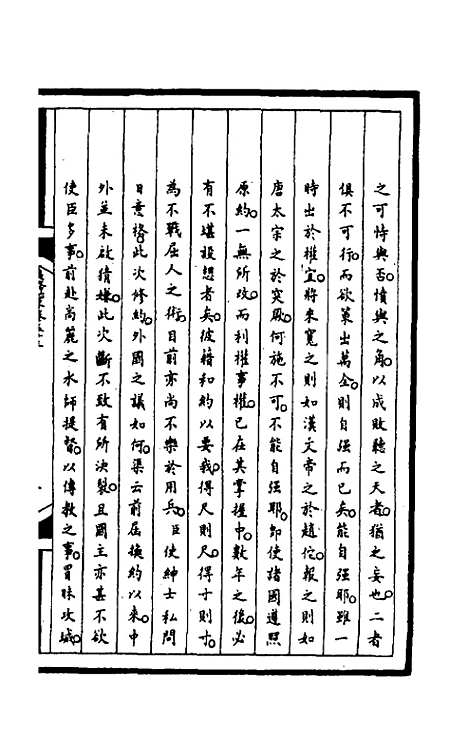 之可恃與否。憤與之角。以成敗聽之天者。猶之妄也。二者
俱不可行。而欲策出萬全。則自强而已矣。能自强耶。雖一
時出於權宜。將來寬之則如漢文帝之於趙佗。報之則如
唐太宗之於突厥。何施不可。不能自强耶。卽使諸國遵照
原約。一無所改。而利權事權。已在其掌握中。數年之後。必
有不堪設想者矣。彼藉和約以要我。得尺則尺。得寸則寸。
為不戰屈人之術。目前亦尚不樂於用兵。臣使紳士私問
日意格。此次修約。外國之議如何。渠云前屆換約以來。中
外並未啟猜嫌。此次斷不致有所決裂。且國主亦甚不欲
使臣多事。前赴尚麓之水師提督。以傳教之事。冒昧攻城。